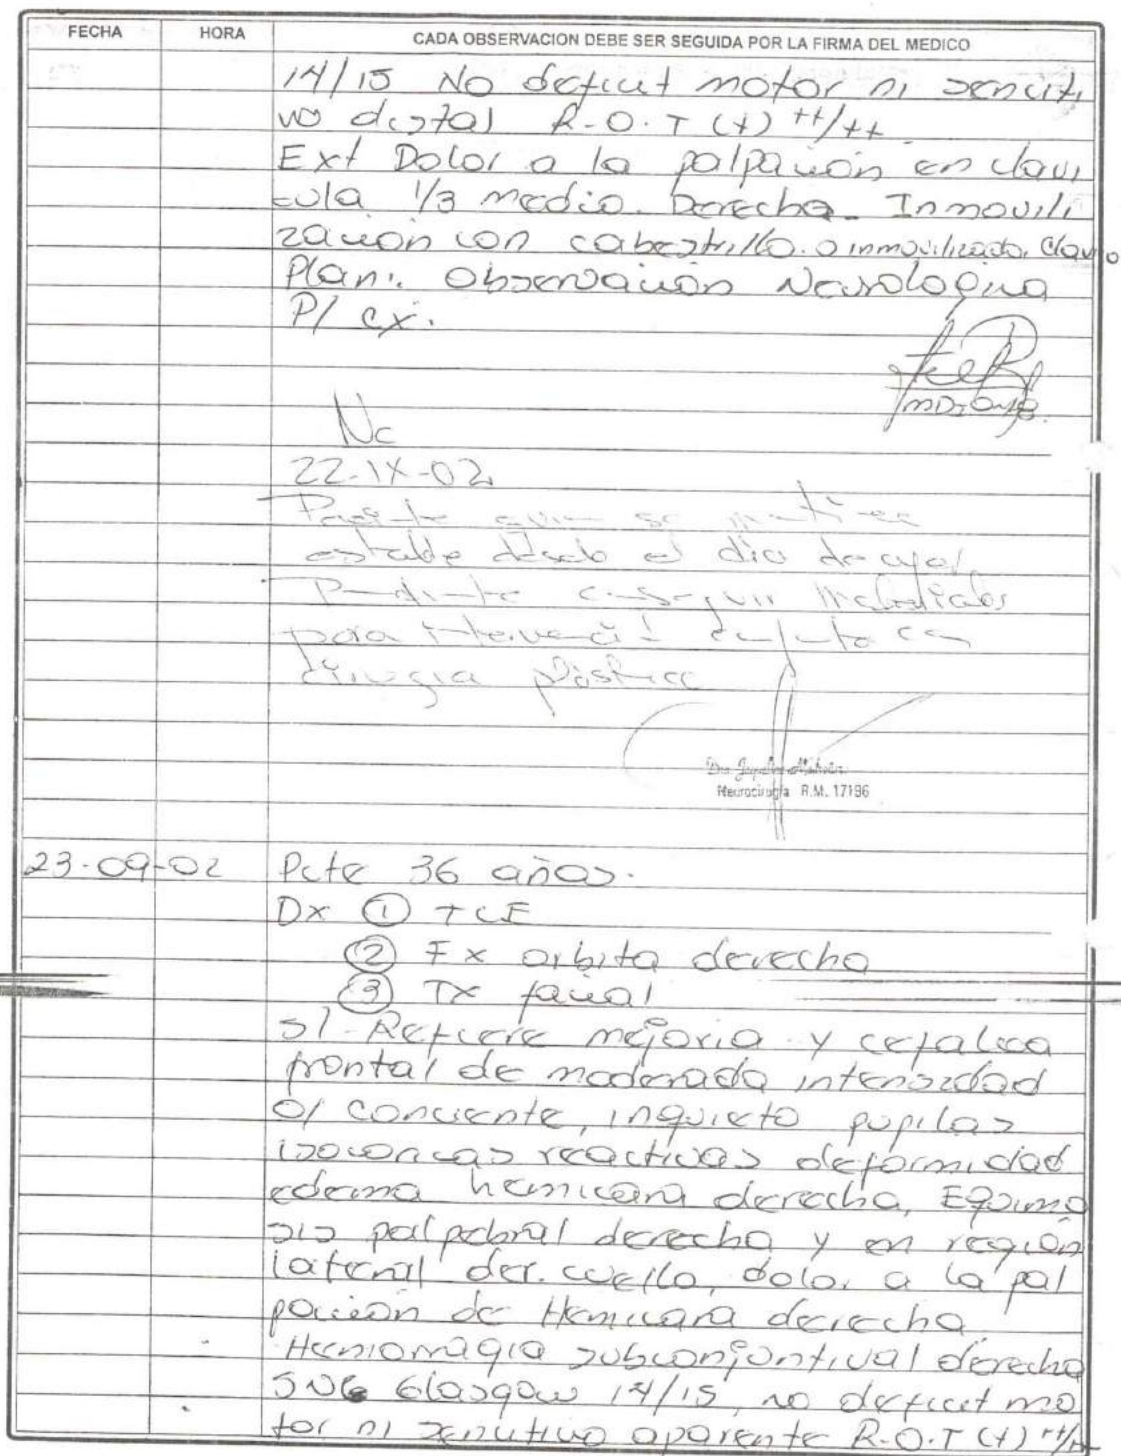 FECHA HORA CADA OBSERVACION DEBE SER SEGUIDA POR LA FIRMA DEL MEDICO
14/15 No deficit motor ni sensiti
vo distal R.O.T (+) ++/++
Ext Dolor a la palpación en clavi
cula 1/3 medio. Derecha. Inmovili
zación con cabestrillo. o inmovilizado, clavo
Plan: Observación Neurologica
P/ cx.
Nc
22-IX-02
Paciente quien se mantiene
estable desde el dia de ayer
Pendiente conseguir materiales
para intervención conjunta con
cirugia plástica
Neurocirugía R.M. 17196
23-09-02 Pcte 36 años.
Dx ① TCE
② Fx orbita derecha
③ Tx facial
S/ Refiere mejoria y cefalea
frontal de moderada intensidad
O/ conciente, inquieto pupilas
isocoricas reactivas deformidad
edema hemicara derecha, Equimo
sis palpebral derecha y en región
lateral der. cuello, dolor a la pal
pación de Hemicara derecha
Hemorragia subconjuntival derecha
SNC Glasgow 14/15, no deficit mo
tor ni sensitivo aparente R.O.T (+) ++/